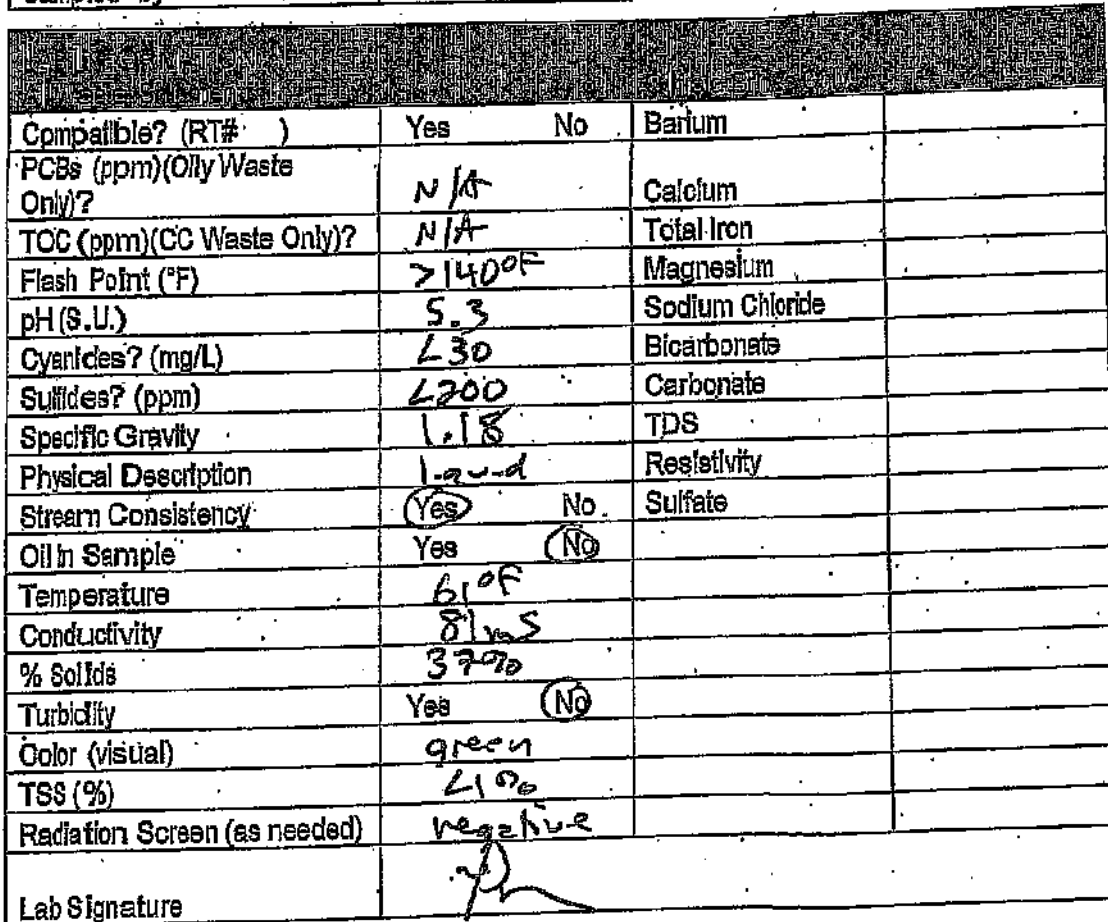 Compatible? (RT# ) Yes No Barium
PCBs (ppm)(Oily Waste
Only)? N/A Calcium
TOC (ppm)(CC Waste Only)? N/A Total Iron
Flash Point (°F) >140°F Magnesium
pH (S.U.) 5.3 Sodium Chloride
Cyanides? (mg/L) <30 Bicarbonate
Sulfides? (ppm) <200 Carbonate
Specific Gravity 1.18 TDS
Physical Description liquid Resistivity
Stream Consistency Yes No Sulfate
Oil in Sample Yes No
Temperature 61°F
Conductivity 81 mS
% Solids 37%
Turbidity Yes No
Color (visual) green
TSS (%) <1%
Radiation Screen (as needed) negative
Lab Signature